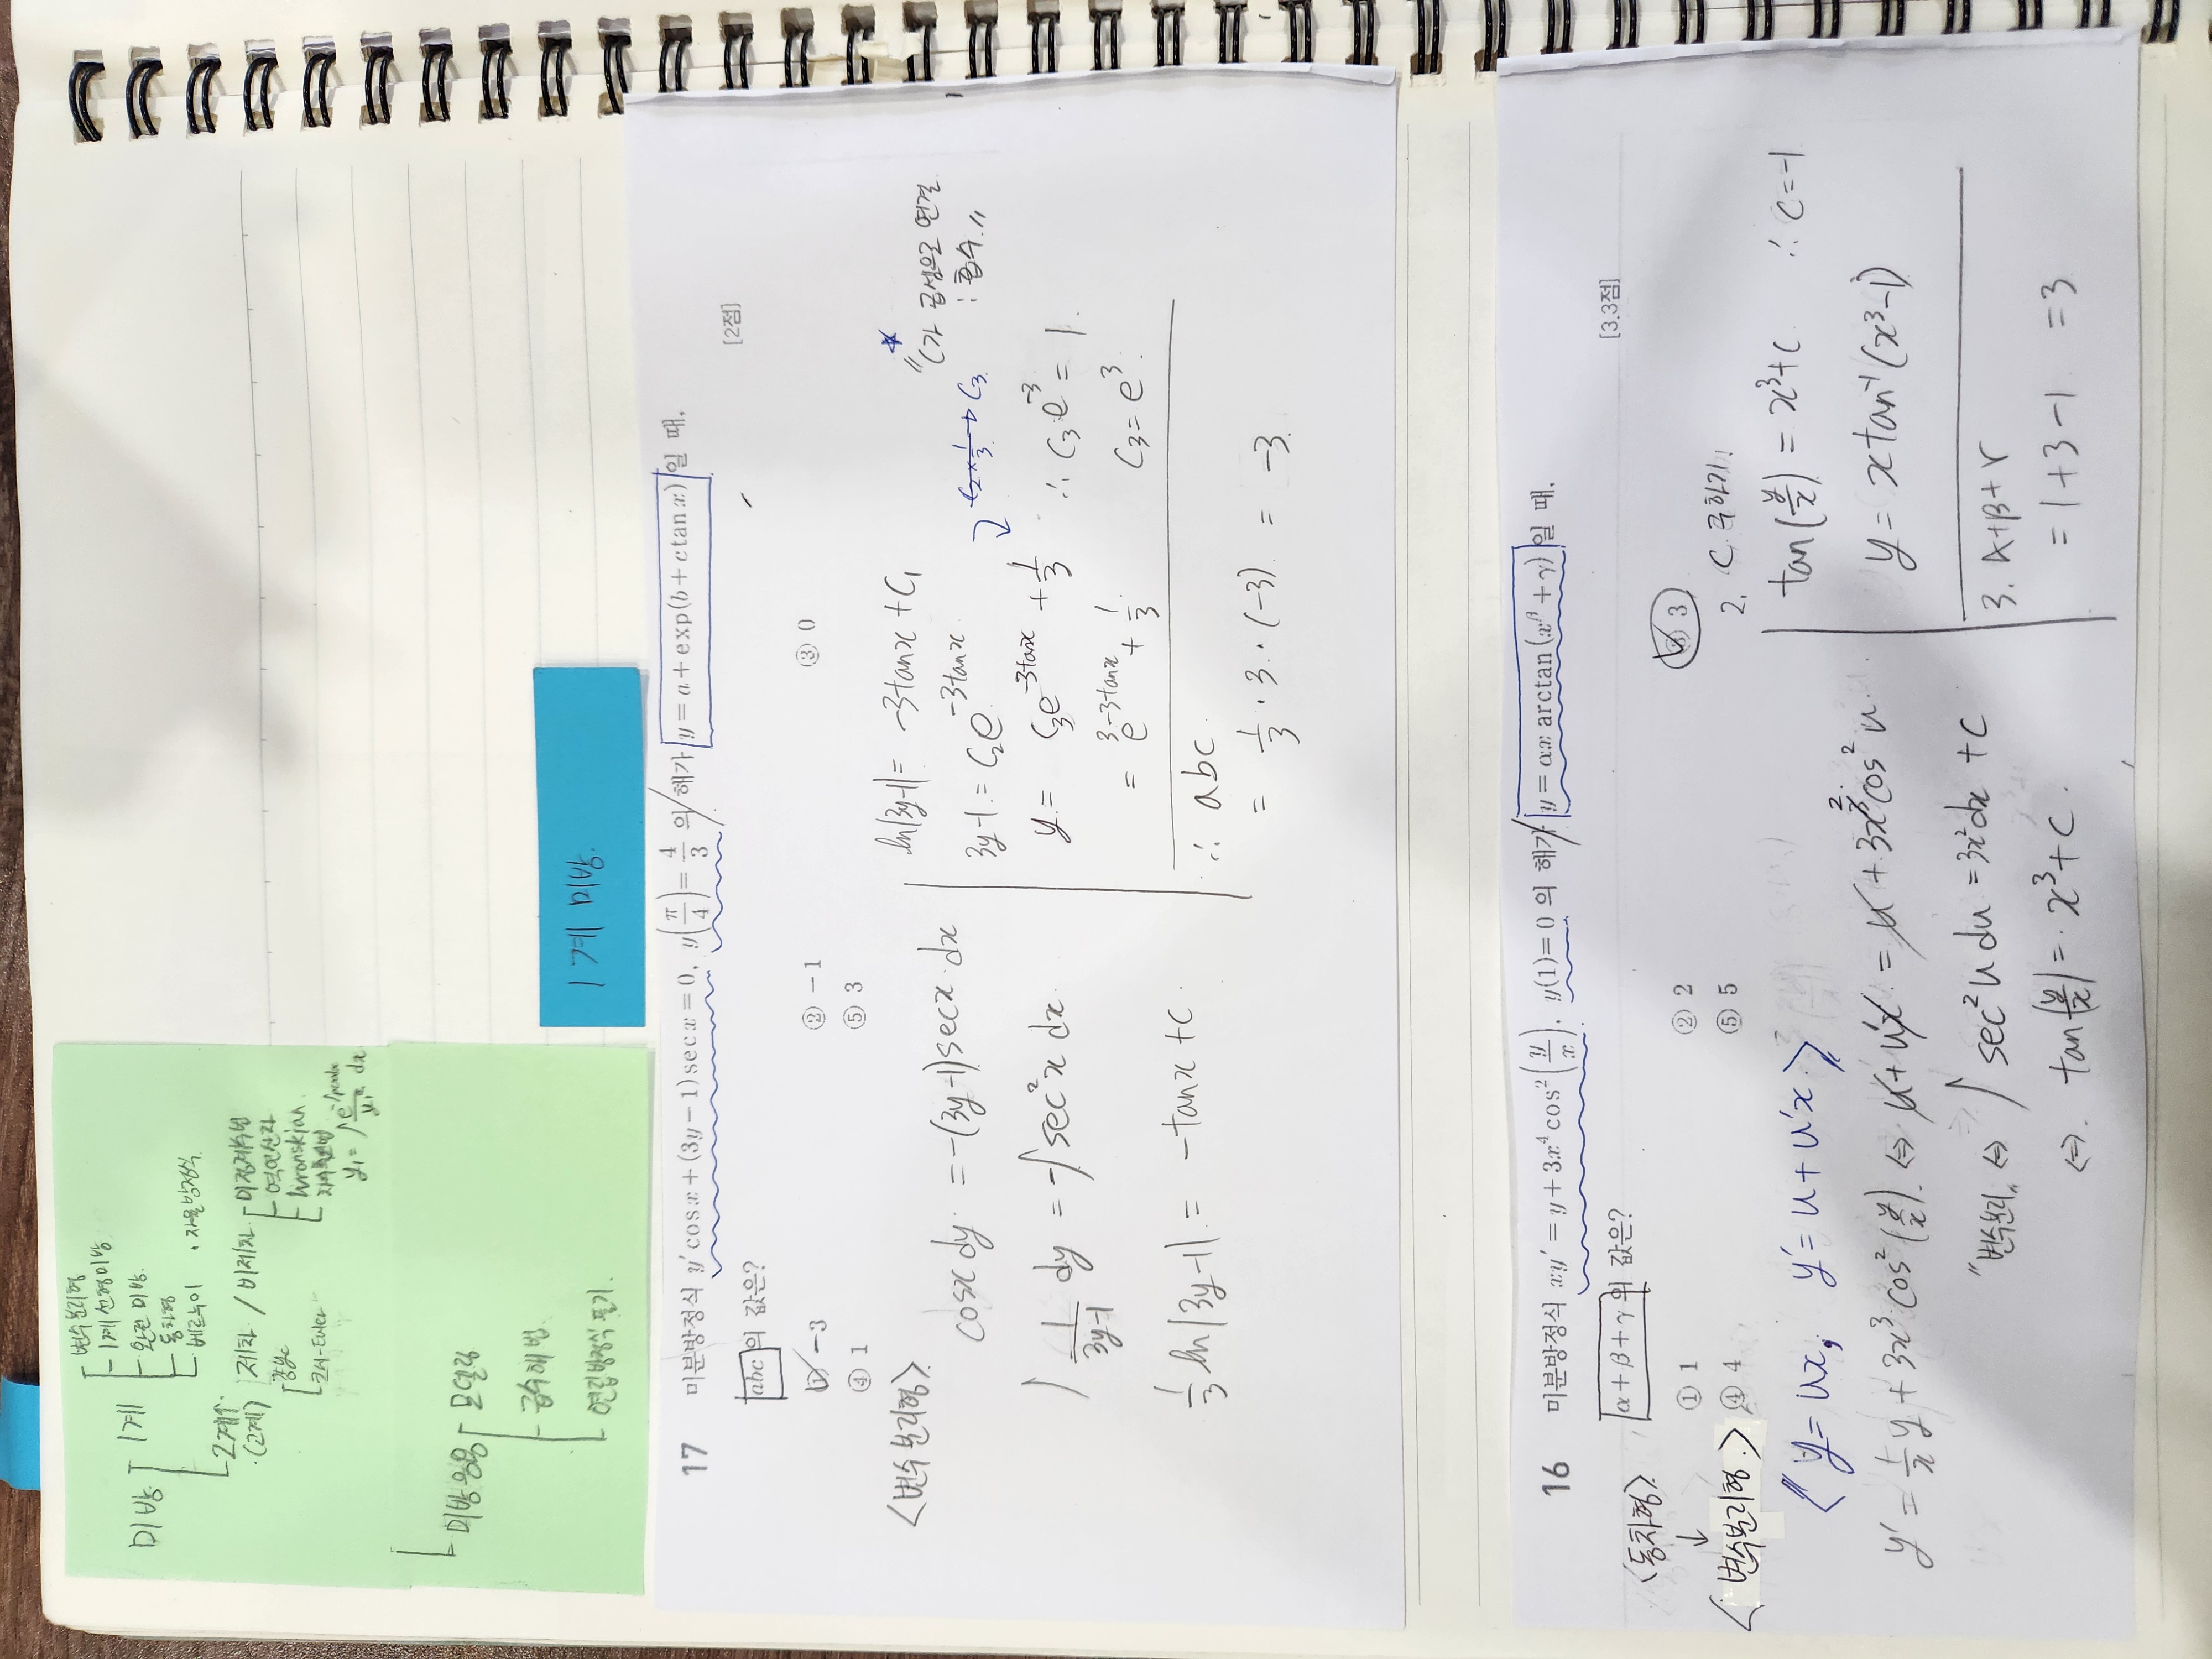 미방
1계
변수분리형
1계선형미방
완전미방
동차형
베르누이
2계↑
(고계)
제차 / 비제차
미정계수법
역연산자
Wronskian
• 자율방정식
코시-Euler
미방응용
모델링
급수해법
연립방정식 풀기.
1계 미방.
17 미분방정식 y′cos x + (3y − 1)sec x = 0, y(π/4) = 4/3 의 해가 y = a + exp(b + c tan x) 일 때,
abc 의 값은? [2점]
① −3 ② −1 ③ 0
④ 1 ⑤ 3
<변수분리형>
cosx dy = -(3y-1)secx dx
∫ 1/(3y-1) dy = -∫sec²x dx
1/3 ln|3y-1| = -tanx + C
ln|3y-1| = -3tanx + C₁
3y-1 = C₂e^(-3tanx)
C₂×1/3 → C₃
"C가 곱셈으로 연결
: 흡수"
y = C₃e^(-3tanx) + 1/3
∴ C₃e^(-3) = 1
C₃ = e³
= e^(3-3tanx) + 1/3
∴ abc
= 1/3 · 3 · (-3) = -3
16 미분방정식 xy′ = y + 3x⁴cos²(y/x), y(1) = 0 의 해가 y = αx arctan(x^β + γ) 일 때,
α + β + γ 의 값은? [3.3점]
① 1 ② 2 ③ 3
④ 4 ⑤ 5
<동차형>
↓
<변수분리형>
<y = ux, y′ = u + u′x>
y′ = 1/x y + 3x³cos²(y/x) ⇔ u + u′x = u + 3x³cos²u
"변수분리" ⇔ ∫sec²u du = 3x²dx + C
⇔ tan(y/x) = x³ + C
2. C 구하기!
tan(y/x) = x³ + C ∴ C = -1
y = x tan⁻¹(x³-1)
3. α+β+γ
= 1+3-1 = 3